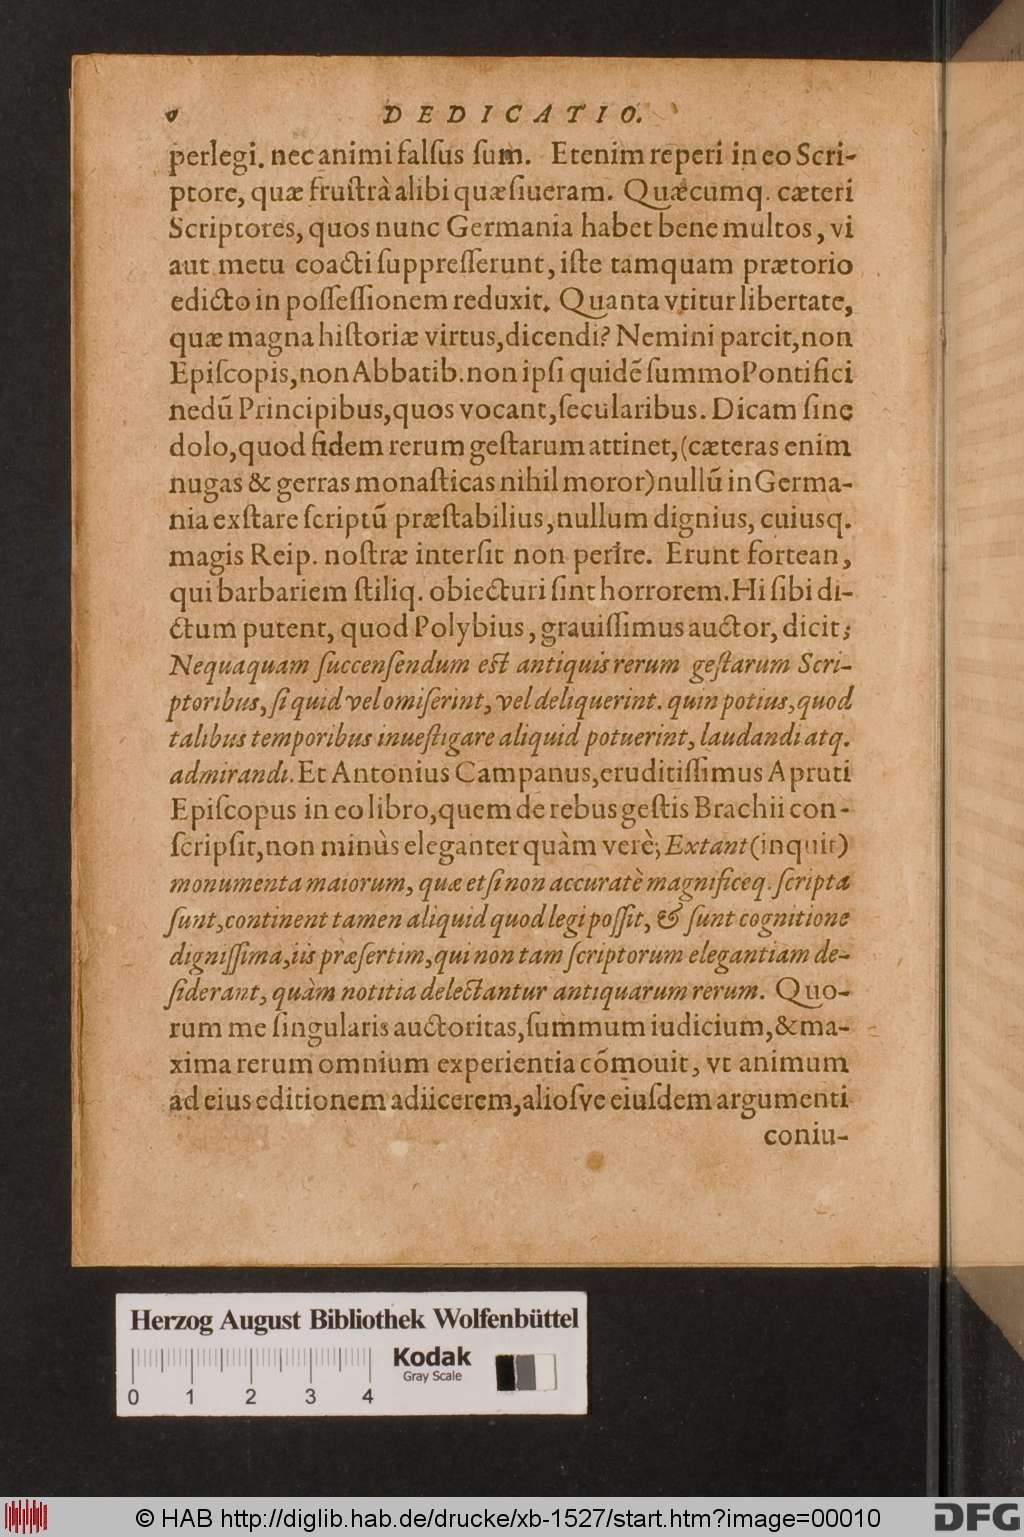 DEDICATIO.
perlegi. nec animi falſus ſum. Etenim reperi in eo Scri-
ptore, quæ fruſtrà alibi quæſiueram. Quæcumq. cæteri
Scriptores, quos nunc Germania habet bene multos, vi
aut metu coacti ſuppreſſerunt, iſte tamquam prætorio
edicto in poſſeſſionem reduxit. Quanta vtitur libertate,
quæ magna hiſtoriæ virtus, dicendi? Nemini parcit, non
Epiſcopis, non Abbatib. non ipſi quidē ſummo Pontifici
nedū Principibus, quos vocant, ſecularibus. Dicam ſine
dolo, quod fidem rerum geſtarum attinet, (cæteras enim
nugas & gerras monaſticas nihil moror) nullū in Germa-
nia exſtare ſcriptū præſtabilius, nullum dignius, cuiusq.
magis Reip. noſtræ interſit non perire. Erunt fortean,
qui barbariem ſtiliq. obiecturi ſint horrorem. Hi ſibi di-
ctum putent, quod Polybius, grauiſſimus auctor, dicit;
Nequaquam ſuccenſendum eſt antiquis rerum geſtarum Scri-
ptoribus, ſi quid vel omiſerint, vel deliquerint. quin potius, quod
talibus temporibus inueſtigare aliquid potuerint, laudandi atq.
admirandi. Et Antonius Campanus, eruditiſſimus Apruti
Epiſcopus in eo libro, quem de rebus geſtis Brachii con-
ſcripſit, non minùs eleganter quàm verè; Extant (inquit)
monumenta maiorum, quæ etſi non accuratè magnificeq. ſcripta
ſunt, continent tamen aliquid quod legi poſſit, & ſunt cognitione
digniſſima, iis præſertim, qui non tam ſcriptorum elegantiam de-
ſiderant, quàm notitia delectantur antiquarum rerum. Quo-
rum me ſingularis auctoritas, ſummum iudicium, & ma-
xima rerum omnium experientia cōmouit, vt animum
ad eius editionem adiicerem, alioſve eiuſdem argumenti
coniu-
Herzog August Bibliothek Wolfenbüttel
Kodak
Gray Scale
0 1 2 3 4
© HAB http://diglib.hab.de/drucke/xb-1527/start.htm?image=00010
DFG